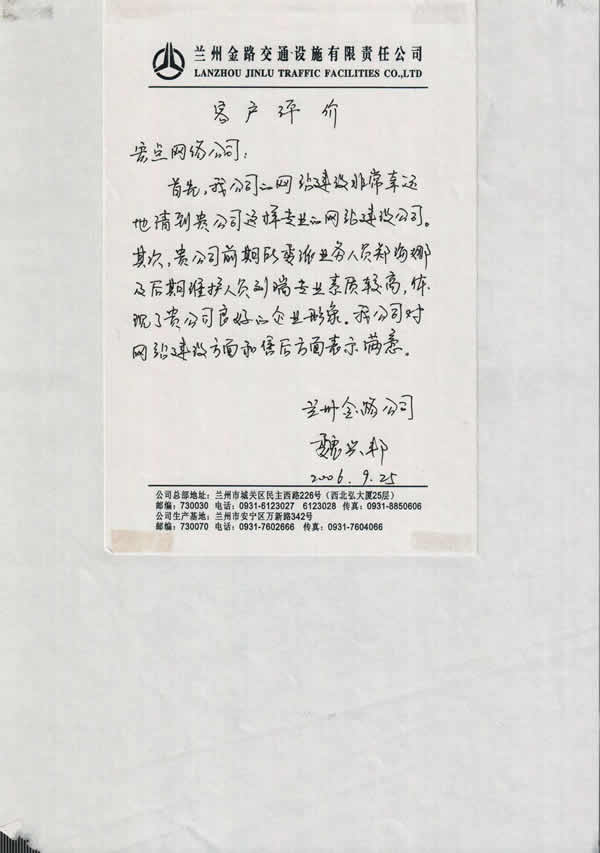 兰州金路交通设施有限责任公司
LANZHOU JINLU TRAFFIC FACILITIES CO.,LTD
客户评价
网络公司：
首先，我公司的网站建设非常幸运
地请到贵公司这样专业的网站建设公司。
其次，贵公司前期的业务人员郑海娜
及后期维护人员刘瑞专业素质较高，体
现了贵公司良好的企业形象。我公司对
网站建设方面和售后方面表示满意。
兰州金路公司
魏兴邦
2006.9.25
公司总部地址：兰州市城关区民主西路226号（西北弘大厦25层）
邮编：730030 电话：0931-6123027 6123028 传真：0931-8850606
公司生产基地：兰州市安宁区万新路342号
邮编：730070 电话：0931-7602666 传真：0931-7604066